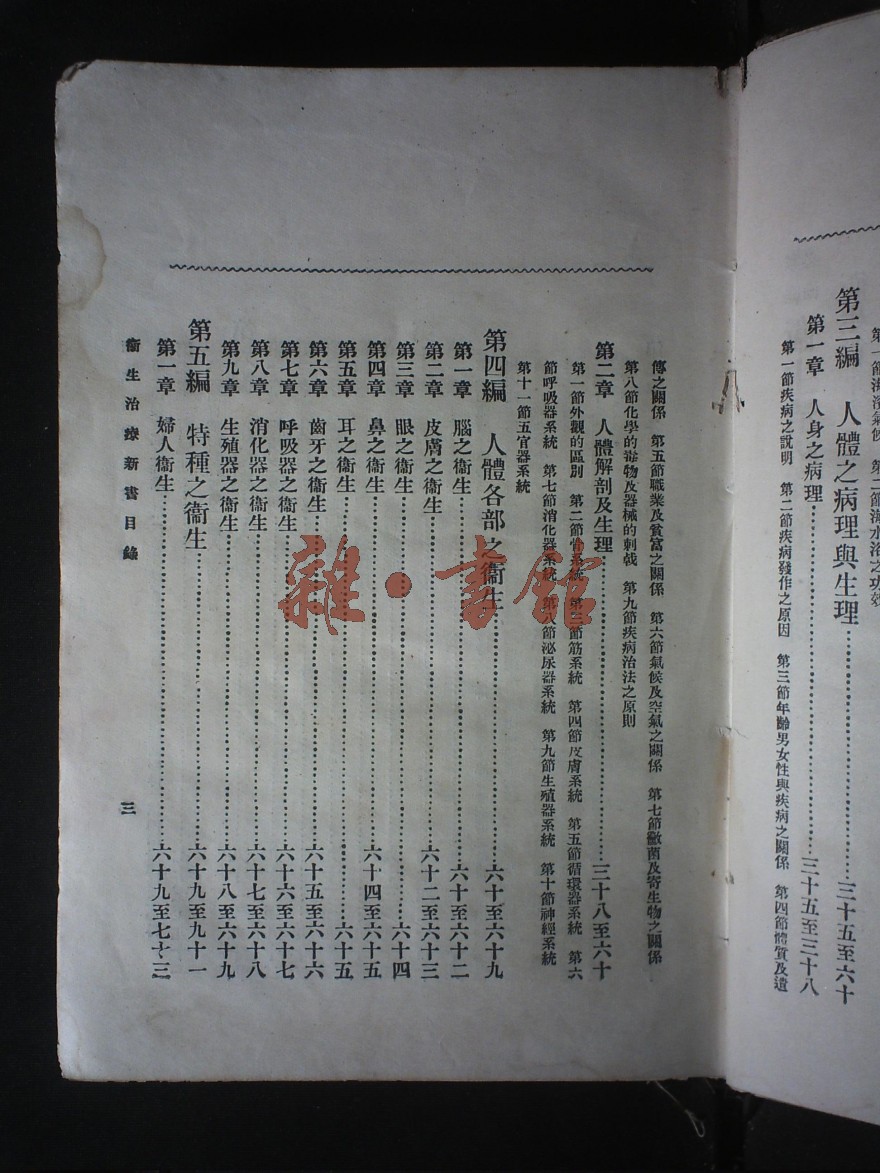 第二節海水浴之功效
第三編　人體之病理與生理……三十五至六十
第一章　人身之病理……三十五至三十八
第一節疾病之說明　第二節疾病發作之原因　第三節年齡男女性與疾病之關係　第四節體質及遺
傳之關係　第五節職業及貧富之關係　第六節氣候及空氣之關係　第七節黴菌及寄生物之關係
第八節化學的毒物及器械的刺戟　第九節疾病治法之原則
第二章　人體解剖及生理……三十八至六十
第一節外觀的區別　第二節骨系統　第三節筋系統　第四節皮膚系統　第五節循環器系統　第六
節呼吸器系統　第七節消化器系統　第八節泌尿器系統　第九節生殖器系統　第十節神經系統
第十一節五官器系統
第四編　人體各部之衞生……六十至六十九
第一章　腦之衞生……六十至六十二
第二章　皮膚之衞生……六十二至六十三
第三章　眼之衞生……六十四
第四章　鼻之衞生……六十四至六十五
第五章　耳之衞生……六十五
第六章　齒牙之衞生……六十五至六十六
第七章　呼吸器之衞生……六十六至六十七
第八章　消化器之衞生……六十七至六十八
第九章　生殖器之衞生……六十八至六十九
第五編　特種之衞生……六十九至九十一
第一章　婦人衞生……六十九至七十三
衞生治療新書目錄
三
雜·書館